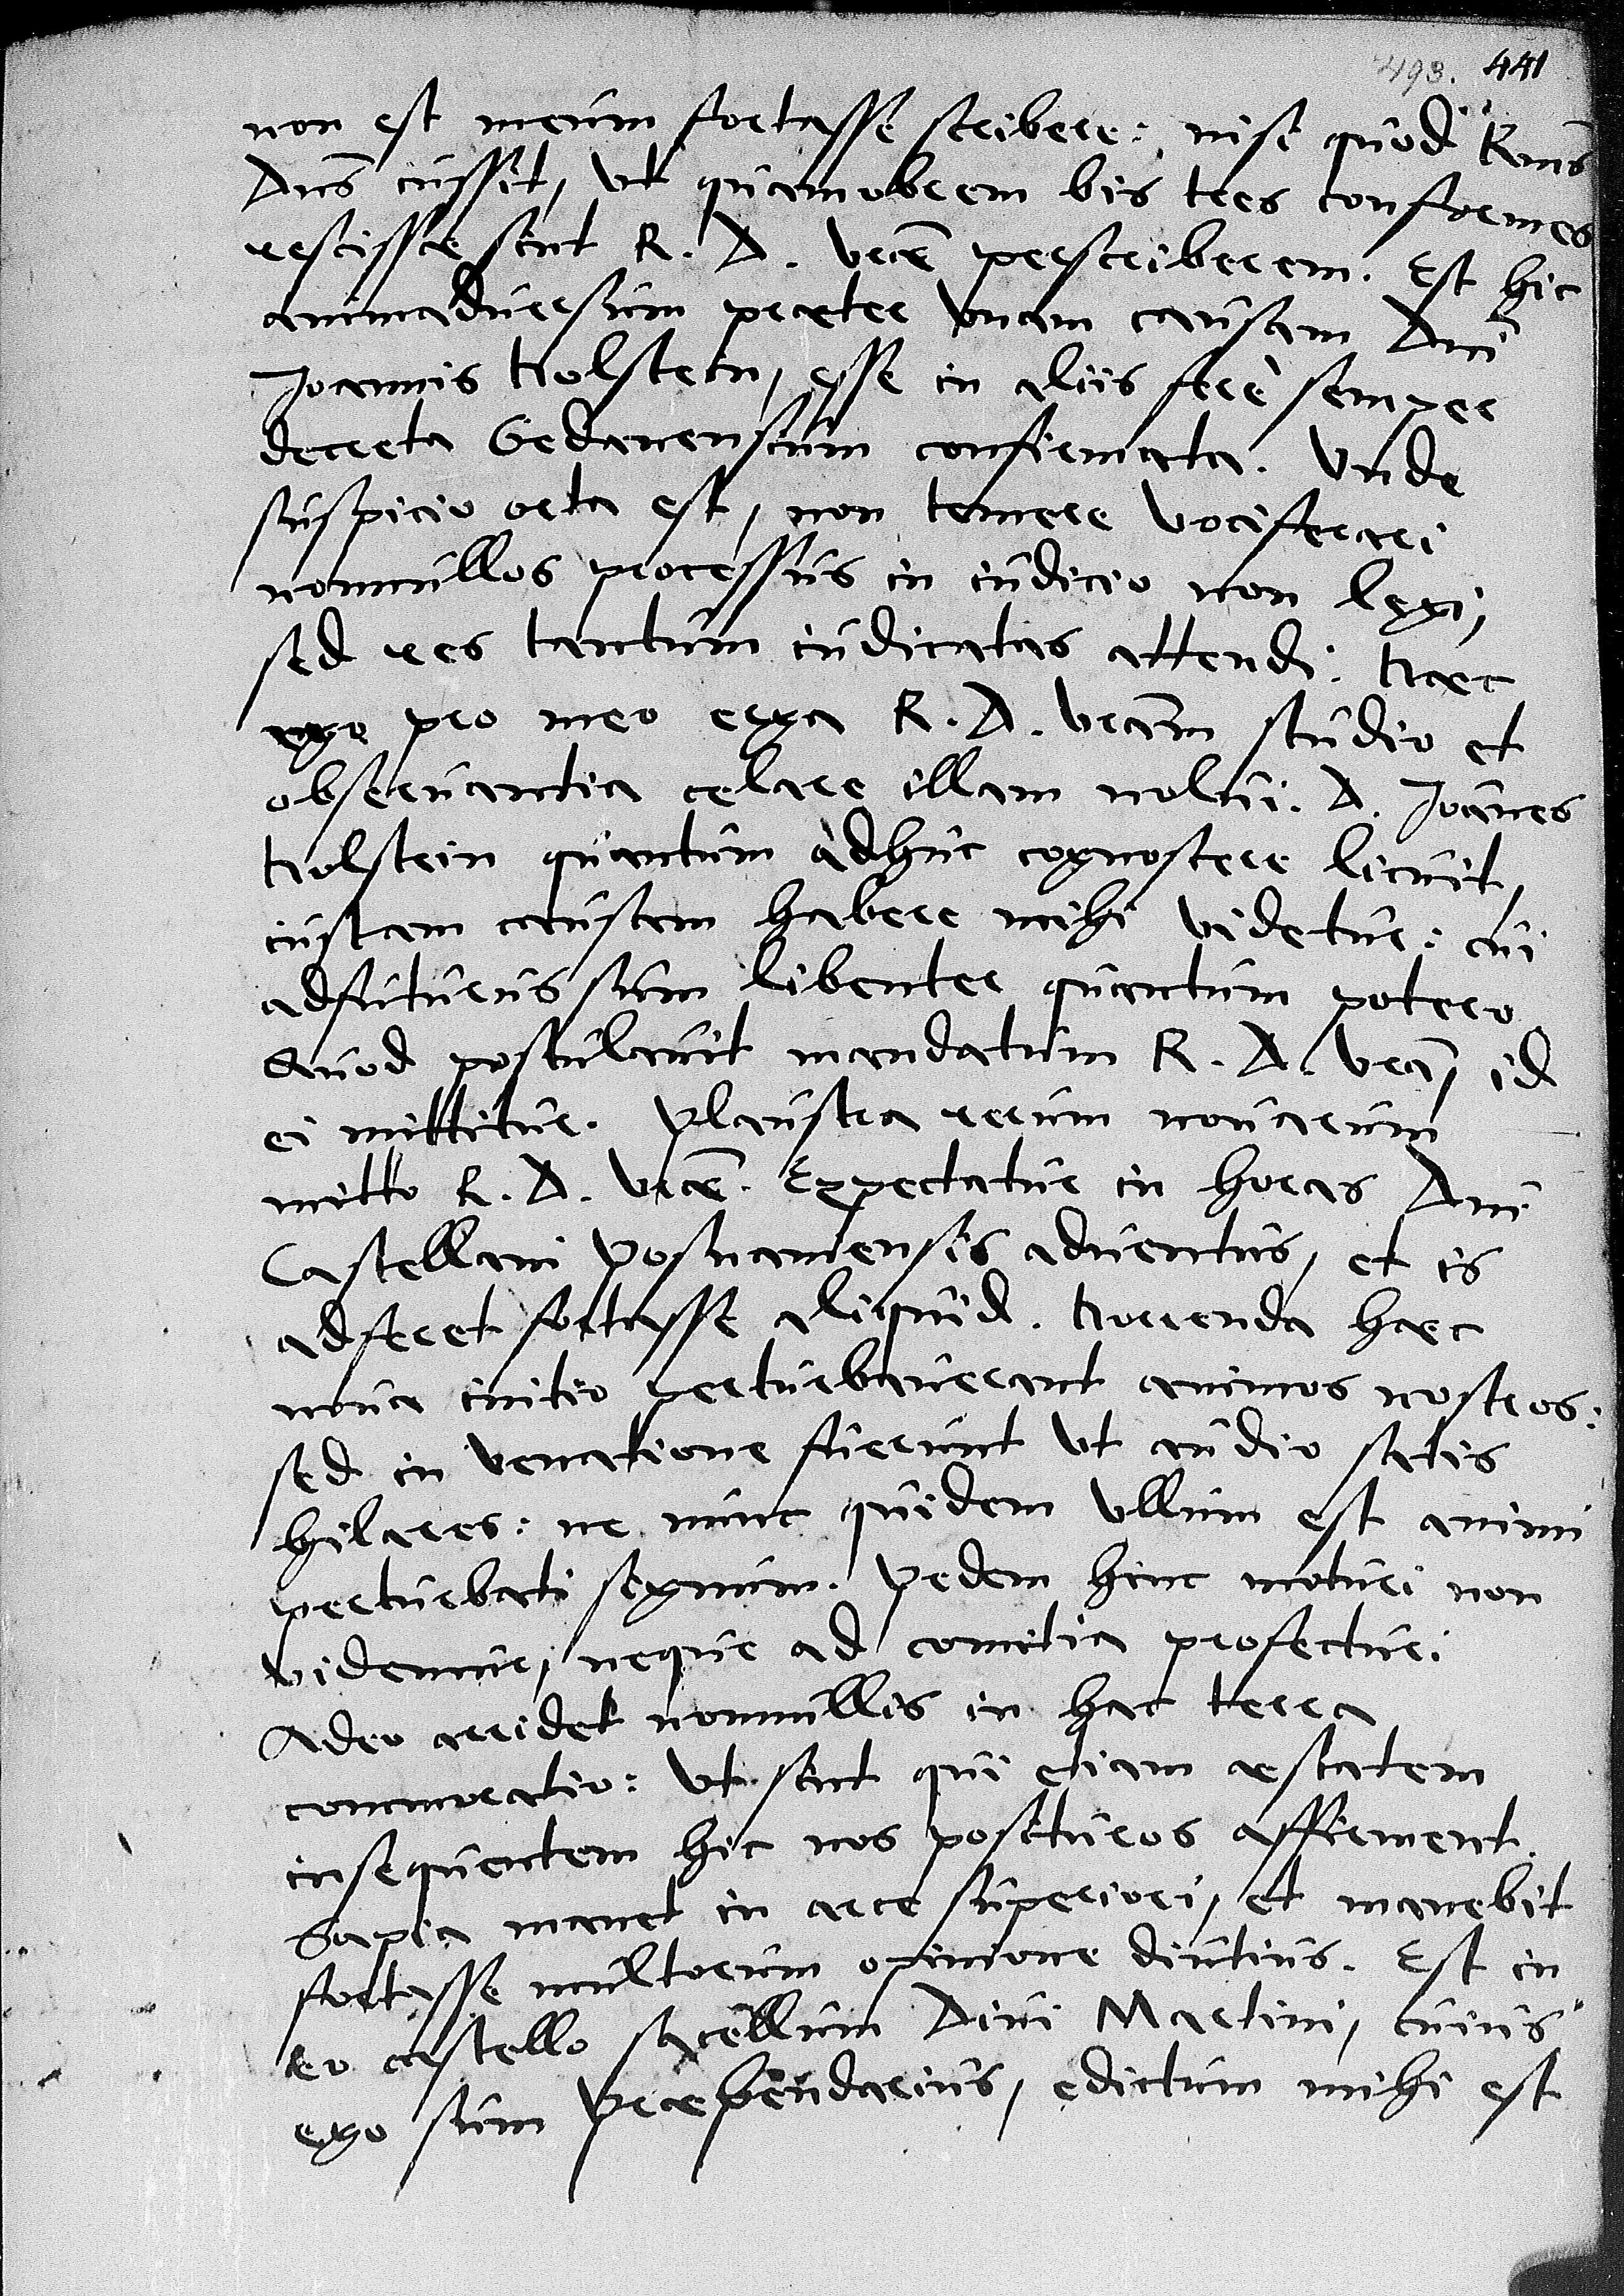 493. 441
non est meum fortasse scribere: nisi quod R.mus
Dn͞s iussit, ut quamobrem bis tres conformes
rescissae sint R. D. Vr͞ae perscriberem. Est hic
animaduersum praeter unam causam Dn͞i
Joannis Holstein, esse in aliis ferè semper
decreta Gedanensium confirmata. Unde
suspicio orta est, non temere vociferari
nonnullos processus in iudicio non legi,
sed res tantum iudicatas attendi. Haec
ego pro meo erga R. D. Vr͞am studio et
obseruantia celare illam nolui. D. Joan̄es
Holstein quantum adhuc cognoscere licuit,
iustam causam habere mihi videtur: cui
adfuturus sum libenter quantum potero
Quod postulauit mandatum R. D. Vr͞a, id
ei mittitur. Plaustra rerum nouarum
mitto R. D. Vr͞ae. Expectatur in horas Dn͞i
Castellani Posnaniensis aduentus, et is
adferet fortasse aliquid. Horrenda haec
noua initio perturbauerant animos nostros:
sed in venatione fuerunt ut audio satis
hilares: ne nunc quidem ullum est animi
perturbati signum. Pedem hinc moturi non
videmur, neque ad comitia profecturi
Adeo arridet nonnullis in hac terra
commoratio: Ut sint qui etiam aestatem
insequentem hic nos posituros affirment.
Sapia manet in arce superiori, et manebit
fortasse multorum opinione diutius. Est in
eo castello sacellum Diui Martini, cuius
ego sum Praebendarius, edictum mihi est